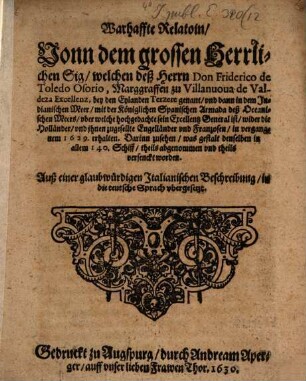 Warhaffte Relatoin/
Vonn dem grossen Herrli-
chen Sig/ welchen deß Herrn Don Friderico de
Toledo Osorio, Marggraffen zu Villanuoua de Val-
deza Excellenz, bey den Eylanden Terzere genant/ vnd dann in dem In-
dianischen Meer/ mit der Königlichen Spanischen Armada deß Oceani-
schen Meers/ vber welche hochgedachte sein Excellenz General ist/ wider die
Holländer/ vnd ihnen zugesellte Engelländer vnd Franzosen/ in vergange-
nem 1629. erhalten. Darinn zusehen/ was gestalt denselben in
allem 140. Schiff/ theils abgenommen vnd theils
versenckt worden.
Auß einer glaubwürdigen Italianischen Beschreibung/ in
die teutsche Sprach vbergesetzt.
Gedruckt zu Augspurg/ durch Andream Aper-
ger/ auff vnser lieben Frawen Thor. 1630.